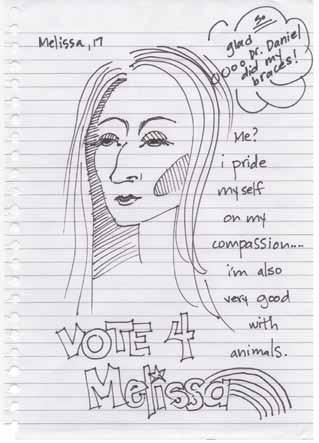 Melissa, 17
So
glad
Dr. Daniel
did my
braces!
Me?
i pride
myself
on my
compassion....
i'm also
very good
with
animals.
VOTE 4
Melissa